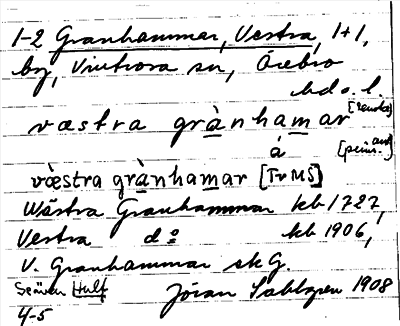 1-2 Granhammar, Västra, 1+1,
by, Vintrosa sn, Örebro
hd o. l.
væstra grànhamar [renskr.]
á
væ̀stra grànhamar [TvMS]
Wästra Granhammar kb 1727,
Vestra do kb 1906,
V. Granhammar skG.
Jöran Sahlgren 1908
4-5